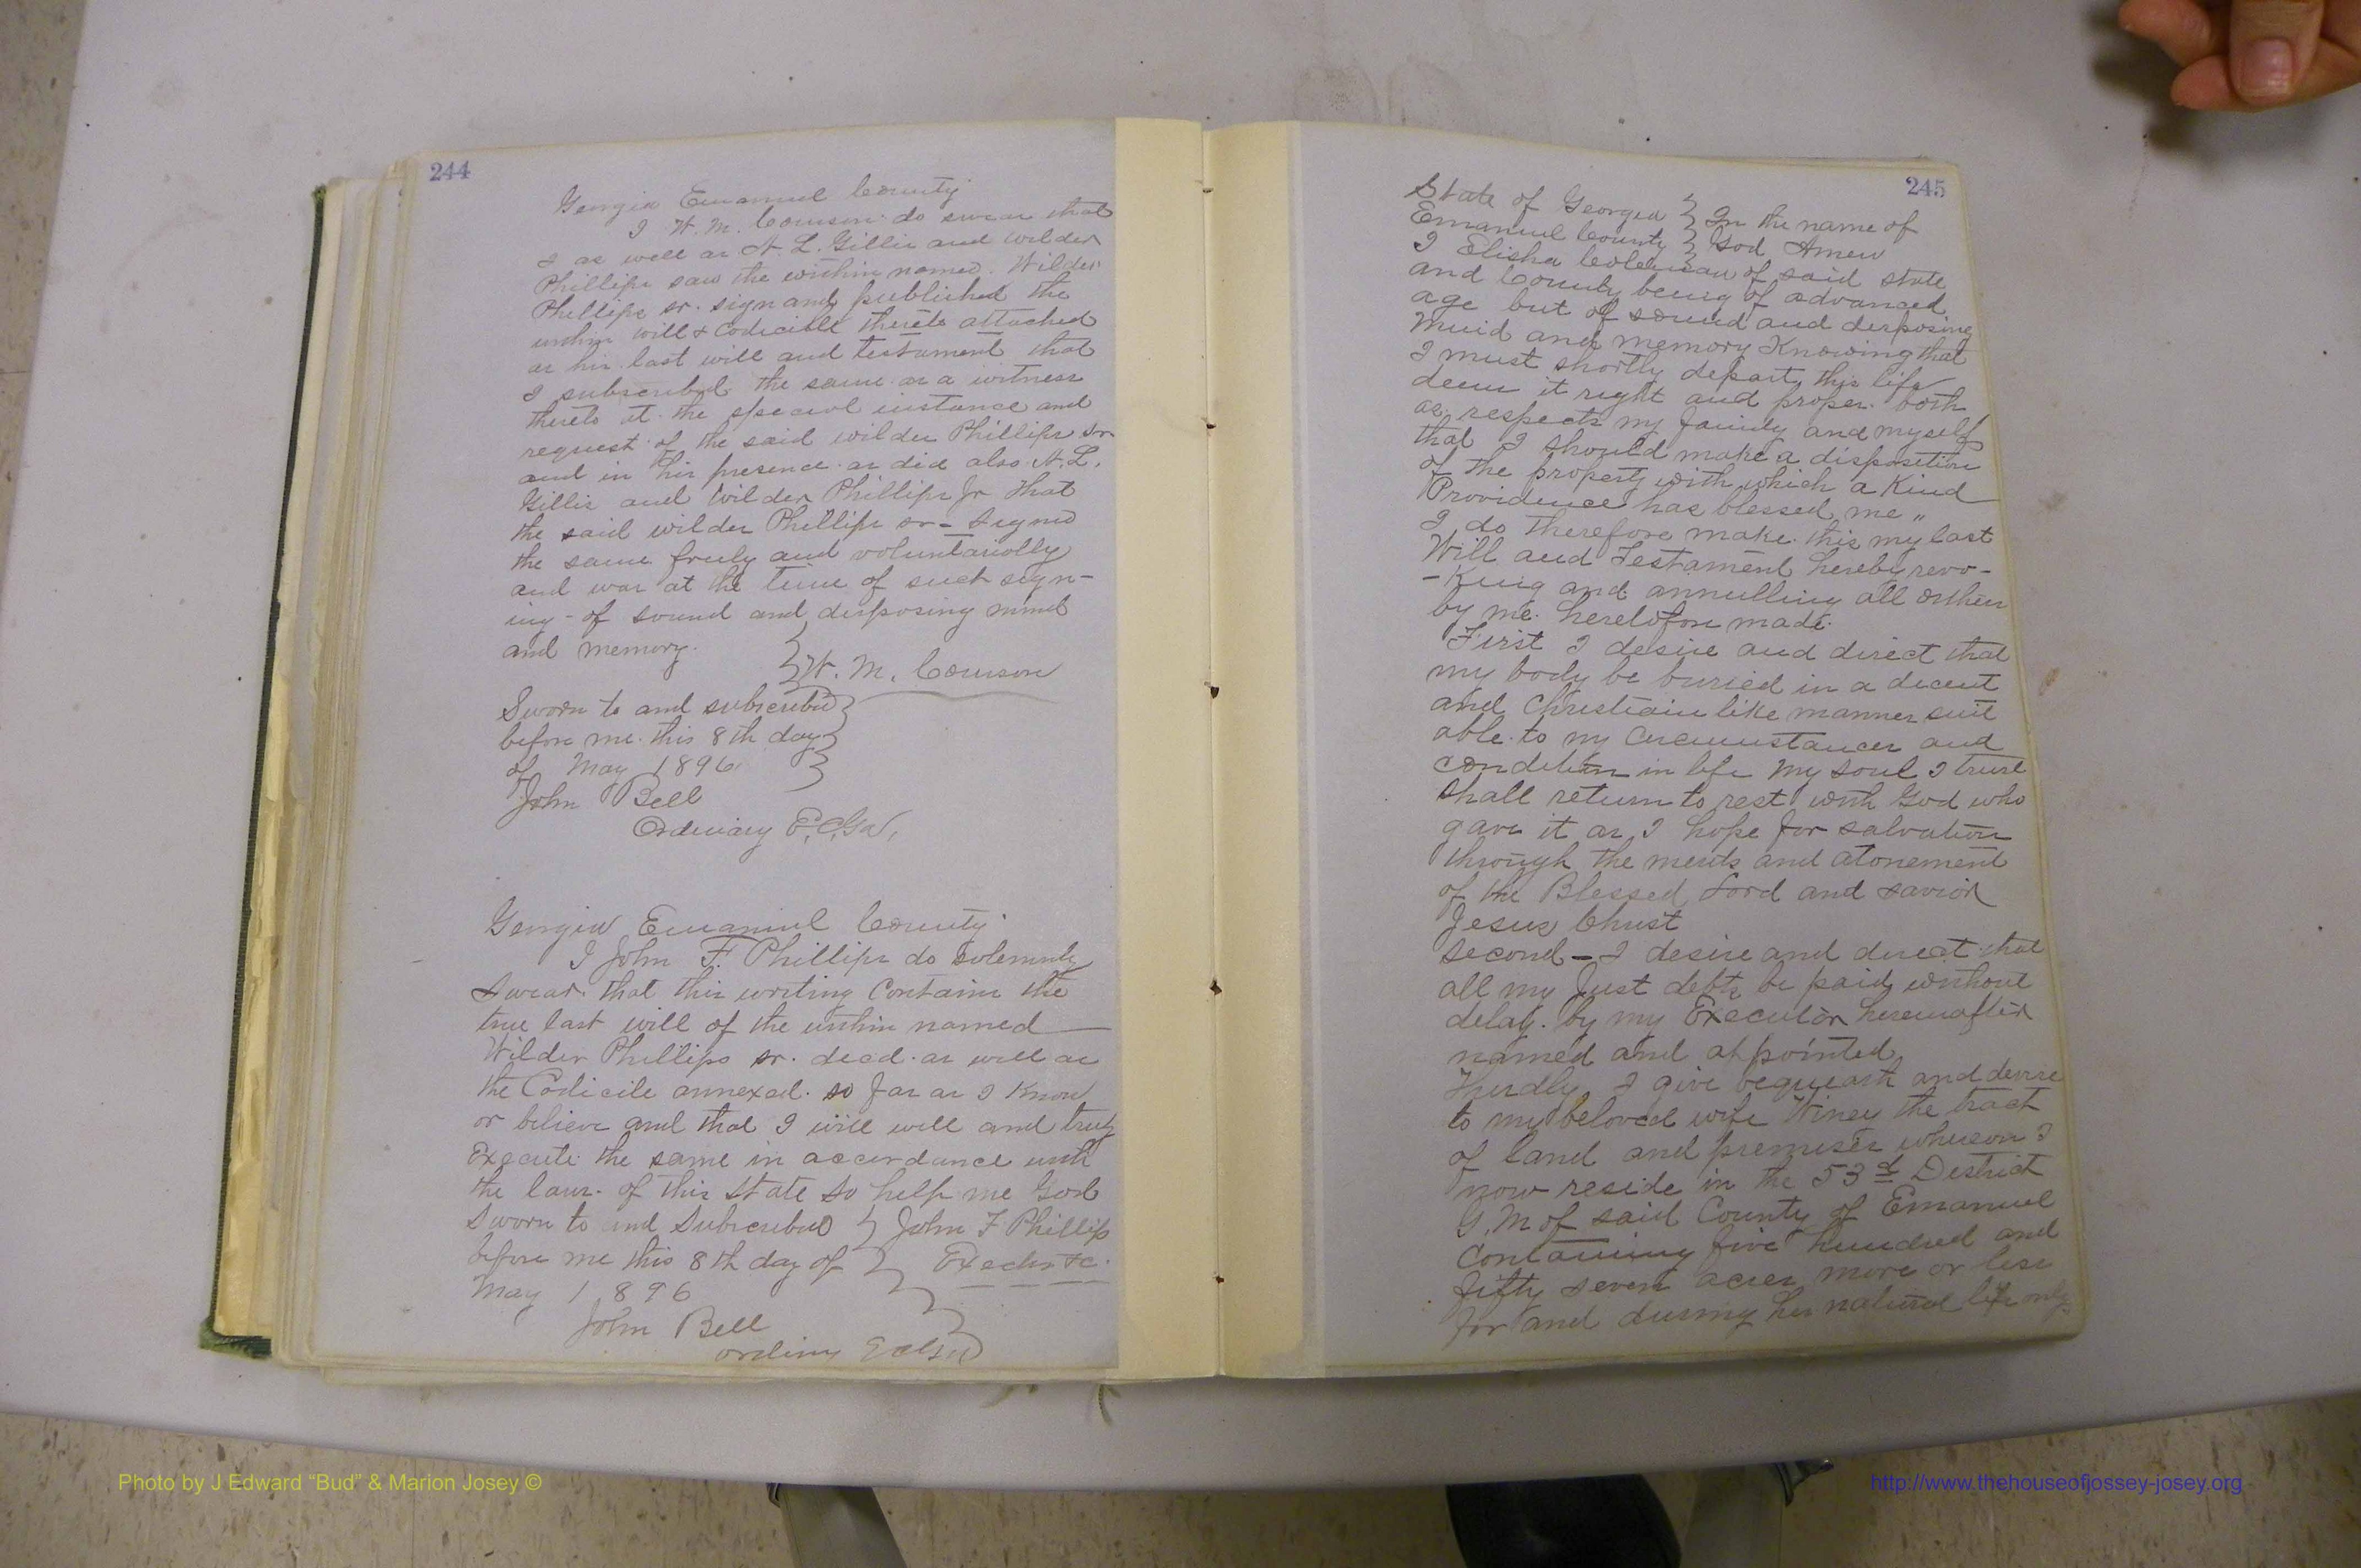 244
Georgia Emanuel County
I W. M. Comson do swear that
I as well as N. L. Gillis and Wilder
Phillips saw the within named Wilder
Phillips sr. sign and published the
within will & Codicible thereto attached
as his last will and testament that
I subscribed the same as a witness
thereto at the special instance and
request of the said wilder Phillips Sr
and in his presence as did also N. L.
Gillis and Wilder Phillips Jr That
the said wilder Phillips sr - signed
the same freely and voluntarially
and was at the time of such sign-
ing - of sound and disposing mind
and memory.
W. M. Comson
Sworn to and subscribed
before me this 8th day
of May 1896
John Bell
Ordinary E.C. Ga.
Georgia Emanuel County
I John F. Phillips do solemnly
Swear that this writing Contains the
true last will of the within named
Wilder Phillips sr. decd. as well as
the Codicile annexed so far as I Know
or believe and that I will well and truly
Execute the same in accordance with
the laws of this State So help me God
Sworn to and Subscribed John F Phillips
before me this 8th day of Exectr &c.
May 1896
John Bell
ordiny E C Ga
245
State of Georgia In the name of
Emanuel County God Amen
I Elisha Coleman of said state
and County being of advanced
age but of sound and disposing
Mind and memory Knowing that
I must shortly depart this life
deem it right and proper both
as respects my family and myself
that I should make a disposition
of the property with which a Kind
Providence has blessed me "
I do Therefore make this my last
Will and Testament hereby revo-
-King and annulling all others
by me heretofore made.
First I desire and direct that
my body be buried in a decent
and Christian like manner suit
able to my Circumstances and
condition in life My soul I trust
Shall return to rest with God who
gave it as I hope for salvation
through the merits and atonement
of the Blessed Lord and savior
Jesus Christ
second - I desire and direct that
all my Just debts be paid without
delay by my Executor hereinafter
named and appointed
Thirdly I give bequeath and devise
to my beloved wife Winey the tract
of land and premises whereon I
now reside in the 53rd District
G. M of said County of Emanuel
Containing five hundred and
fifty seven acres more or less
for and during her natural life only
Photo by J Edward “Bud” & Marion Josey ©
http://www.thehouseofjossey-josey.org